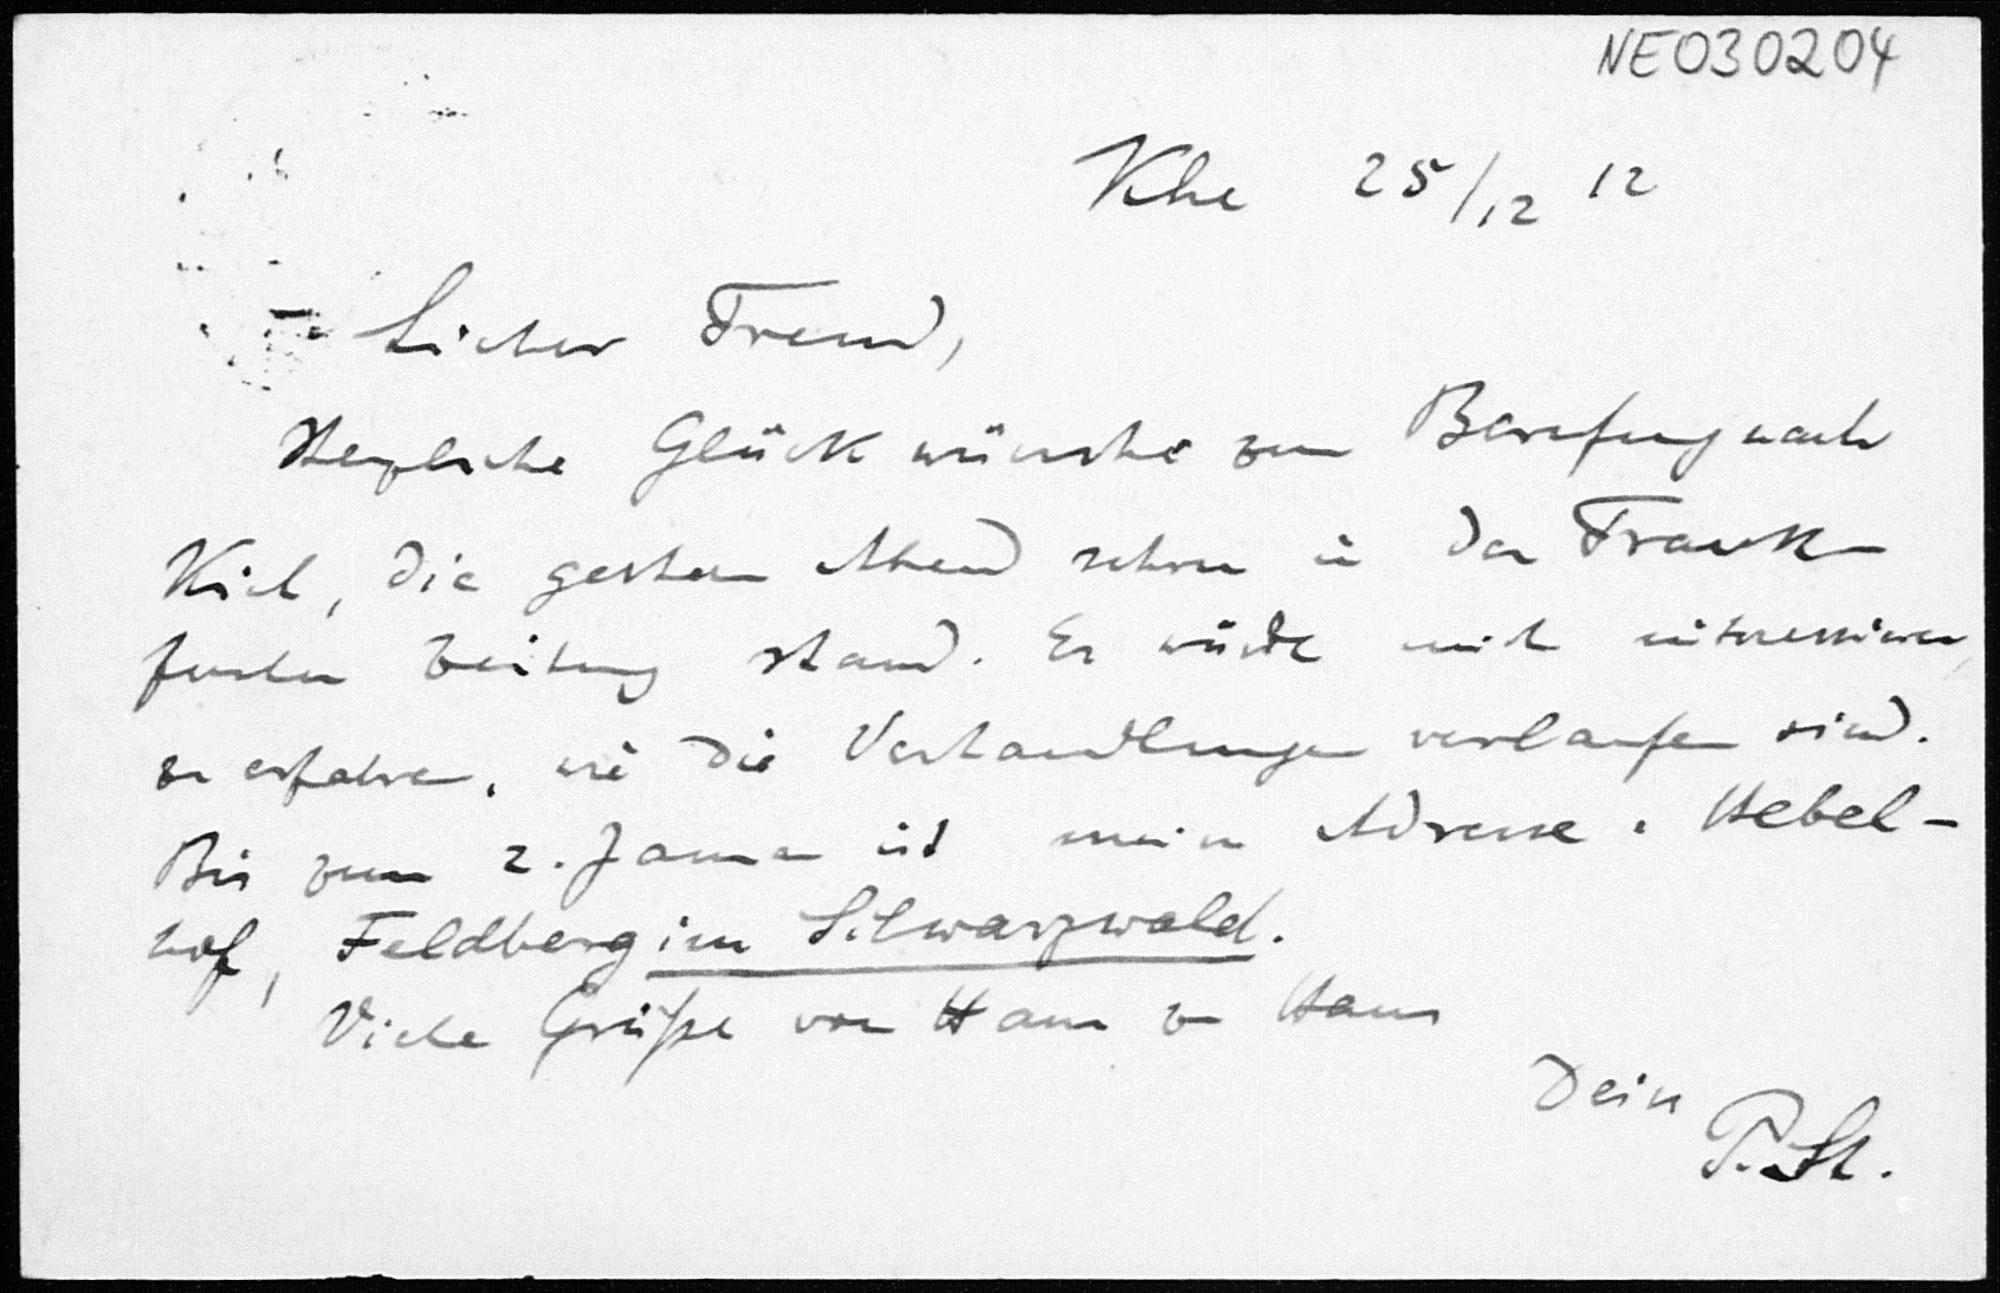 NE030204
Khe 25/12 12
Lieber Freund,
Herzliche Glückwünsche zur Berufung nach
Kiel, die gestern Abend schon in der Frank-
furter Zeitung stand. Es würde mich interessieren,
zu erfahren, wie die Verhandlungen verlaufen sind.
Bis zum 2. Januar ist meine Adresse: Hebel-
hof, Feldberg im Schwarzwald.
Viele Grüße von Haus zu Haus
Dein
P. St.